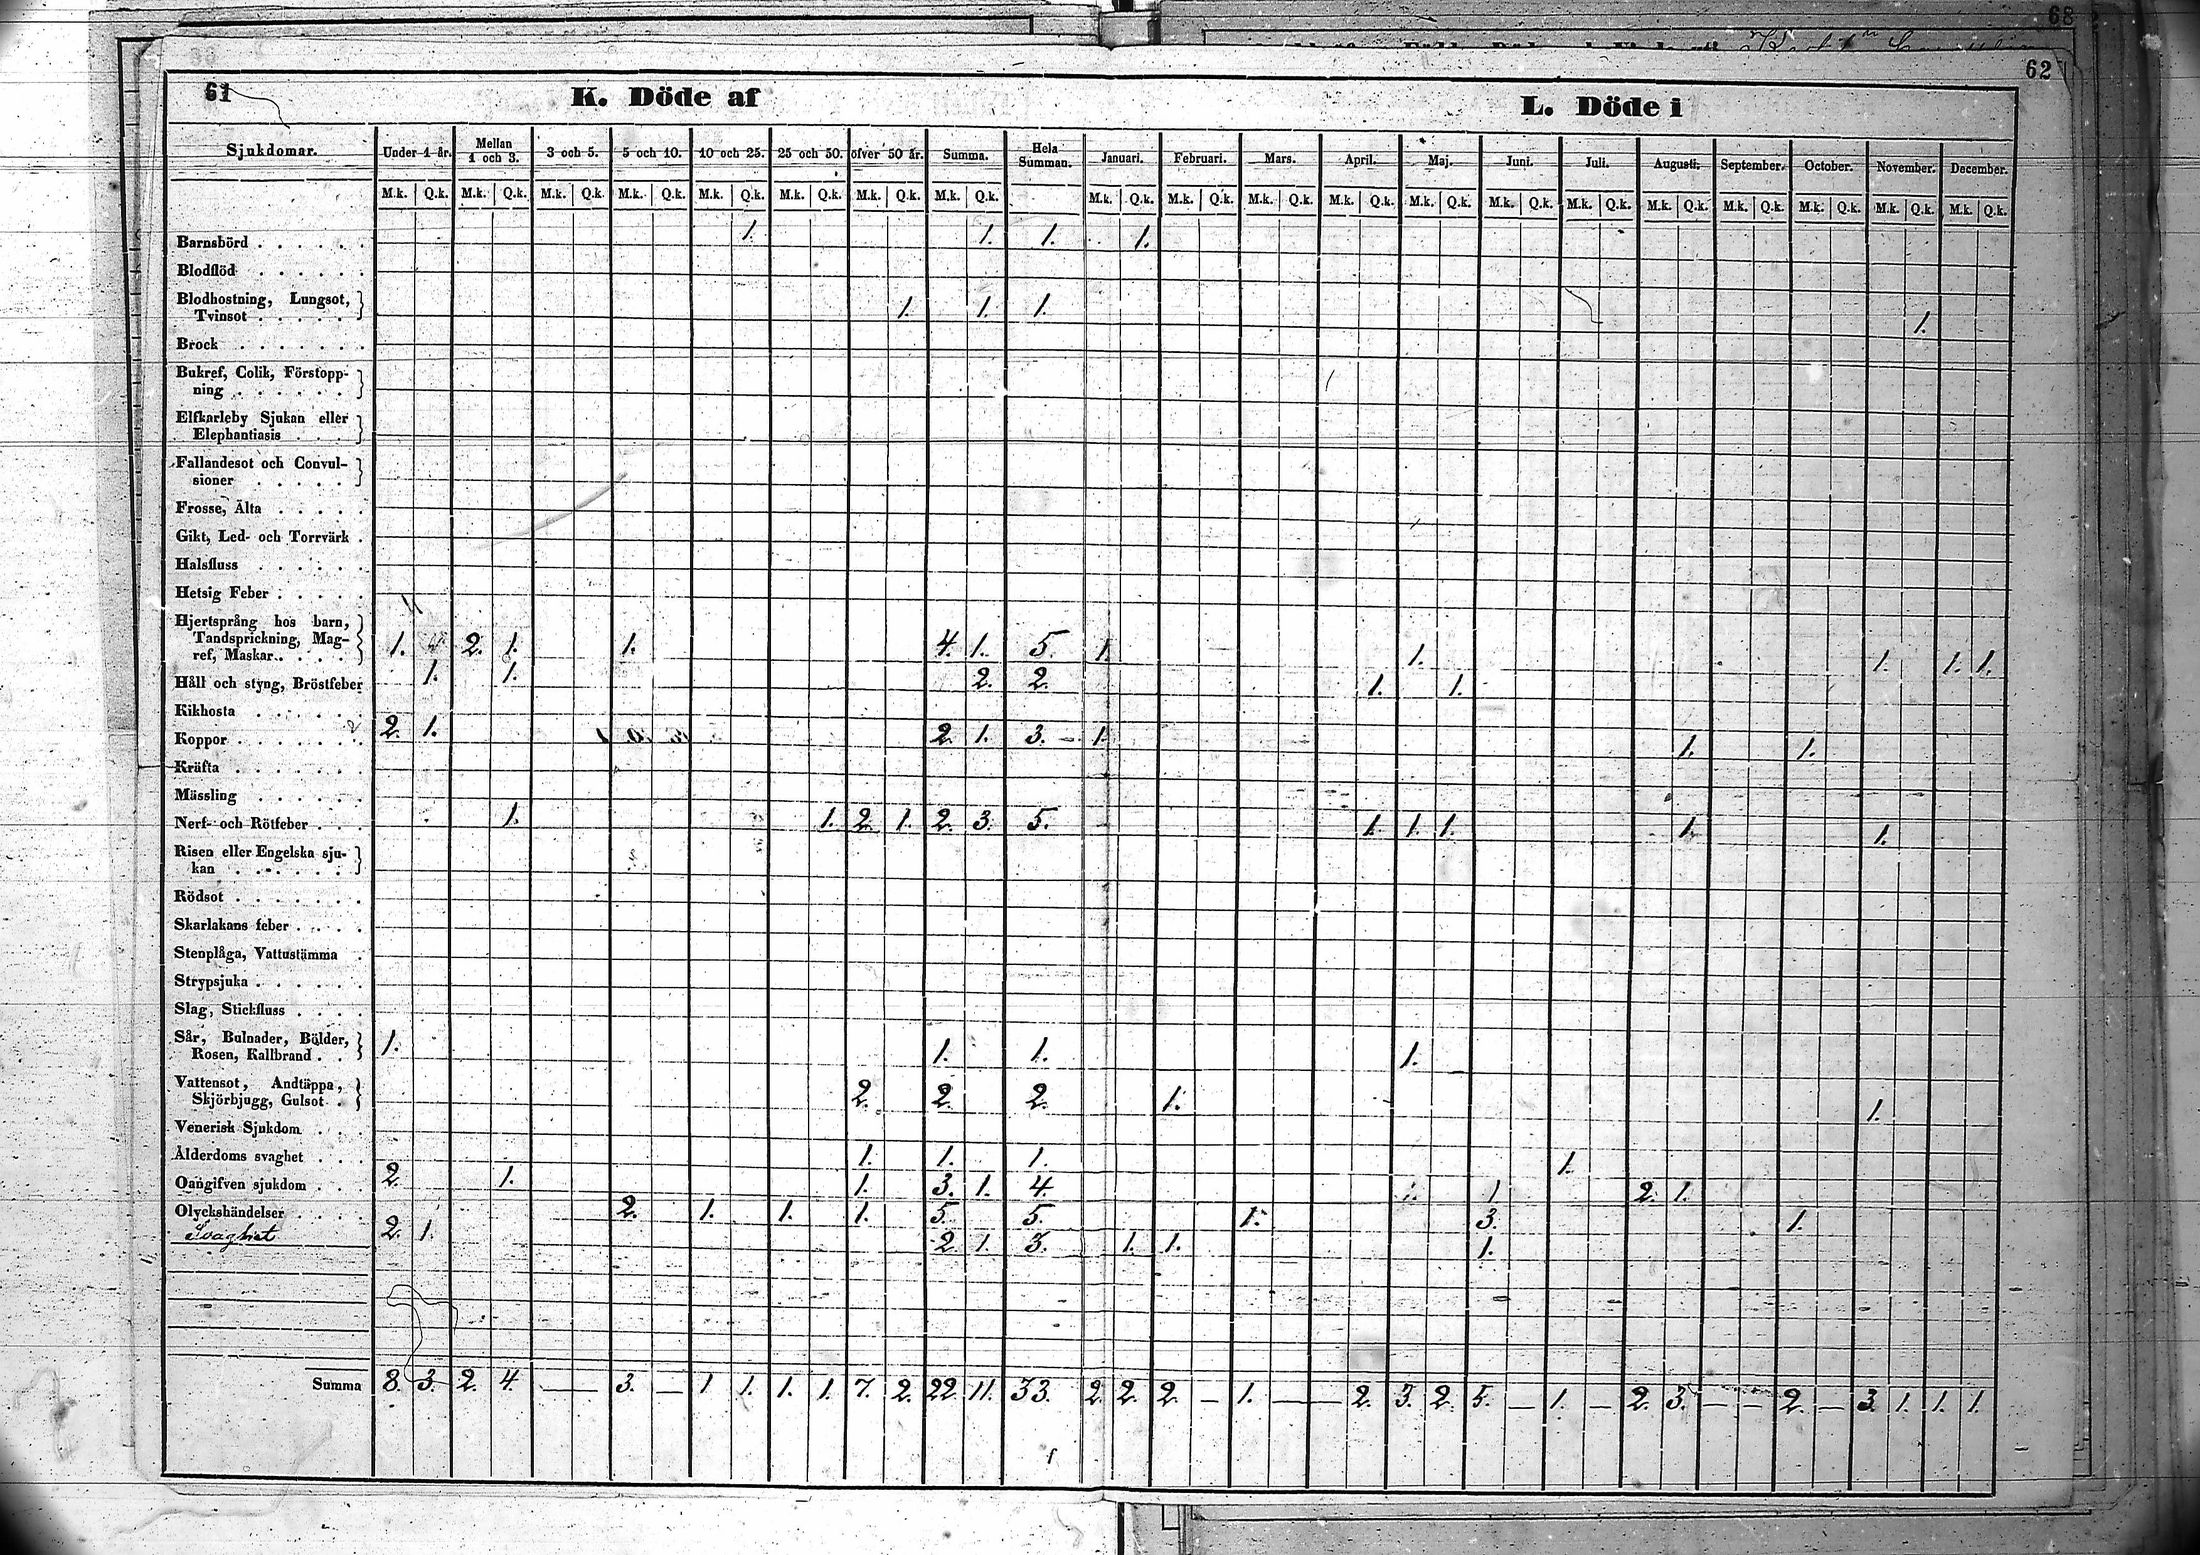 68
62
61
K. Döde af
L. Döde i
Sjukdomar. Under 1 år. Mellan 1 och 3. 3 och 5. 5 och 10. 10 och 25. 25 och 50. öfver 50 år. Summa. Hela Summan. Januari. Februari. Mars. April. Maj. Juni. Juli. Augusti. September. October. November. December.
M.k. Q.k. M.k. Q.k. M.k. Q.k. M.k. Q.k. M.k. Q.k. M.k. Q.k. M.k. Q.k. M.k. Q.k. M.k. Q.k. M.k. Q.k. M.k. Q.k. M.k. Q.k. M.k. Q.k. M.k. Q.k. M.k. Q.k. M.k. Q.k. M.k. Q.k. M.k. Q.k. M.k. Q.k. M.k. Q.k.
Barnsbörd . . . . . . 1. 1. 1. 1.
Blodflöd . . . . . .
Blodhostning, Lungsot,
Tvinsot . . . . . 1. 1. 1. 1.
Brock . . . . . . .
Bukref, Colik, Förstopp-
ning . . . . . .
Elfkarleby Sjukan eller
Elephantiasis . . . .
Fallandesot och Convul-
sioner . . . . .
Frosse, Älta . . . . .
Gikt, Led- och Torrvärk .
Halsfluss . . . . . .
Hetsig Feber . . . . .
Hjertsprång hos barn,
Tandsprickning, Mag-
ref, Maskar. . . . . 1. 2. 1. 1. 4. 1. 5. 1. 1. 1. 1. 1.
Håll och styng, Bröstfeber 1. 1. 2. 2. 1. 1.
Kikhosta . . . . . .
Koppor . . . . . . . 2. 1. 2. 1. 3. 1. 1. 1.
Kräfta . . . . . . .
Mässling . . . . . .
Nerf- och Rötfeber . . . 1. 1. 2. 1. 2. 3. 5. 1. 1. 1. 1. 1.
Risen eller Engelska sju-
kan . . . . . .
Rödsot . . . . . . .
Skarlakans feber . . . .
Stenplåga, Vattustämma .
Strypsjuka . . . . . .
Slag, Stickfluss . . . .
Sår, Bulnader, Bölder,
Rosen, Kallbrand . . 1. 1. 1. 1.
Vattensot, Andtäppa,
Skjörbjugg, Gulsot . 2. 2. 2. 1. 1.
Venerisk Sjukdom . . .
Ålderdoms svaghet . . . 1. 1. 1. 1.
Oangifven sjukdom . . . 2. 1. 1. 3. 1. 4. 1. 2. 1.
Olyckshändelser . . . . 2. 1. 1. 1. 5. 5. 1. 3. 1.
Svaghet 2. 1. 2. 1. 3. 1. 1. 1.
Summa 8. 3. 2. 4. — — 3. — 1 1. 1. 1. 7. 2. 22. 11. 33. 2. 2. 2. — 1. — — 2. 3. 2. 5. — 1. — 2. 3. — — 2. — 3. 1. 1. 1.